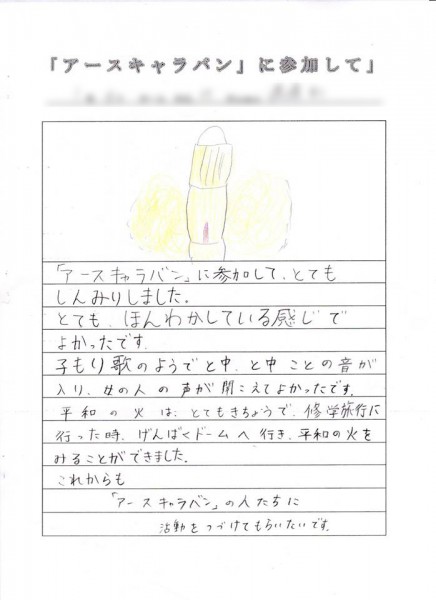 「アースキャラバン」に参加して」
「アースキャラバン」に参加して、とても
しんみりしました。
とても、ほんわかしている感じで
よかったです。
子もり歌のようでと中、と中ことの音が
入り、女の人の声が聞こえてよかったです。
平和の火は、とてもきちょうで、修学旅行に
行った時、げんばくドームへ行き、平和の火を
みることができました。
これからも
「アースキャラバン」の人たちに
活動をつづけてもらいたいです。